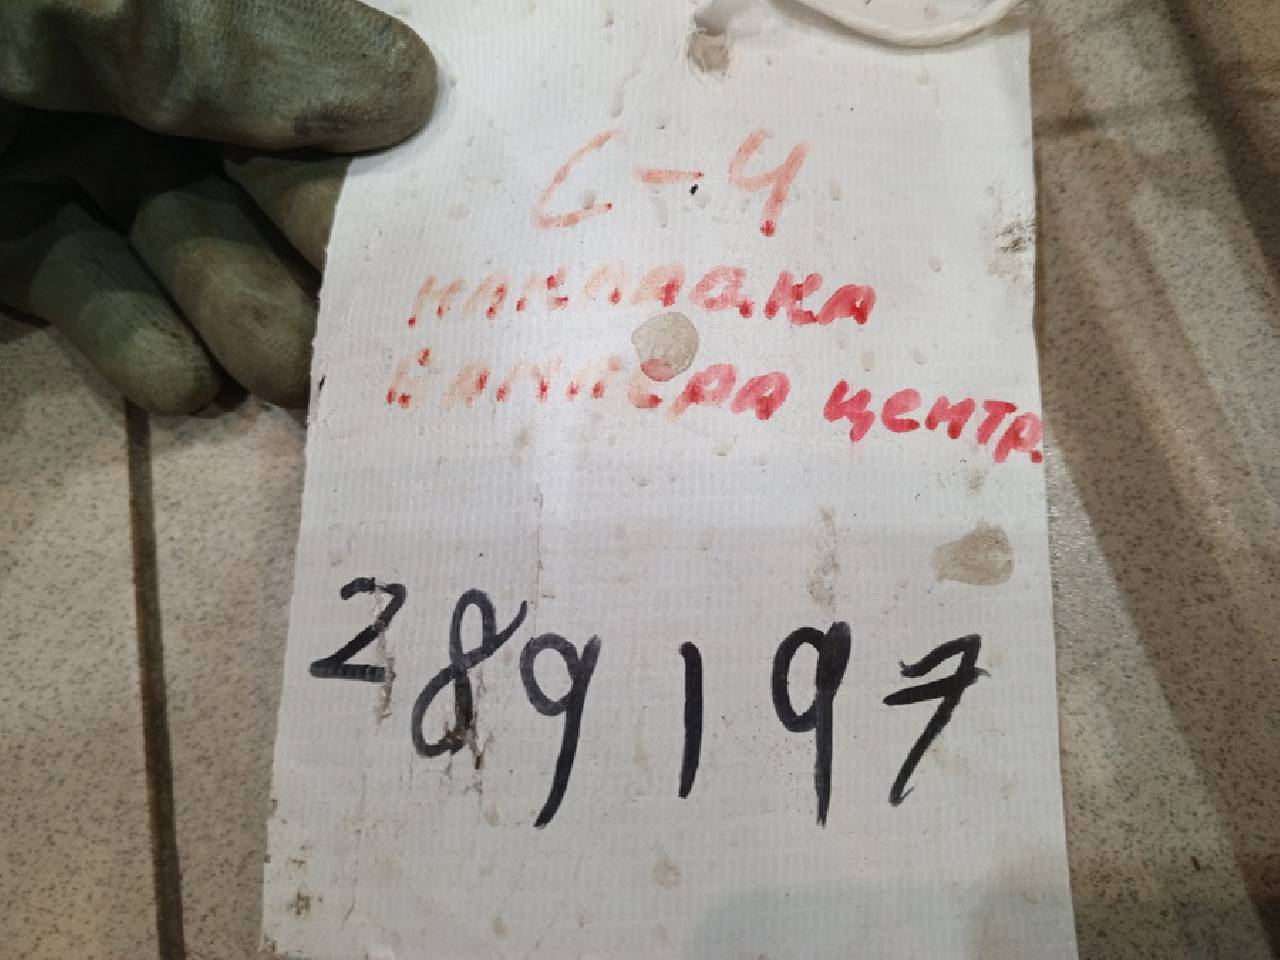 С-4
накладка
бампера центр.
289197